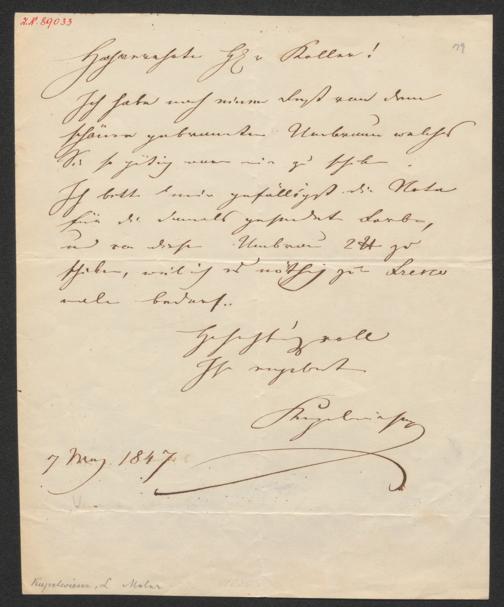 Z.N. 89033
29
Hochverehrter H Koller!
Ich habe noch einen Rest von dem
schönen gebrannten Umbraun welches
Sie so gütig waren mir zu schiken.
Ich bitte mir gefälligst die Nota
für die damals gesendete Farbe,
und von diesem Umbraun 2 ℔ zu
schiken, weil ich es nöthig zur Fresco
malerei bedarf.
Hochachtungsvoll
Ihr ergebenster
Kupelwieser
7 May. 1847
Kupelwieser, L Maler